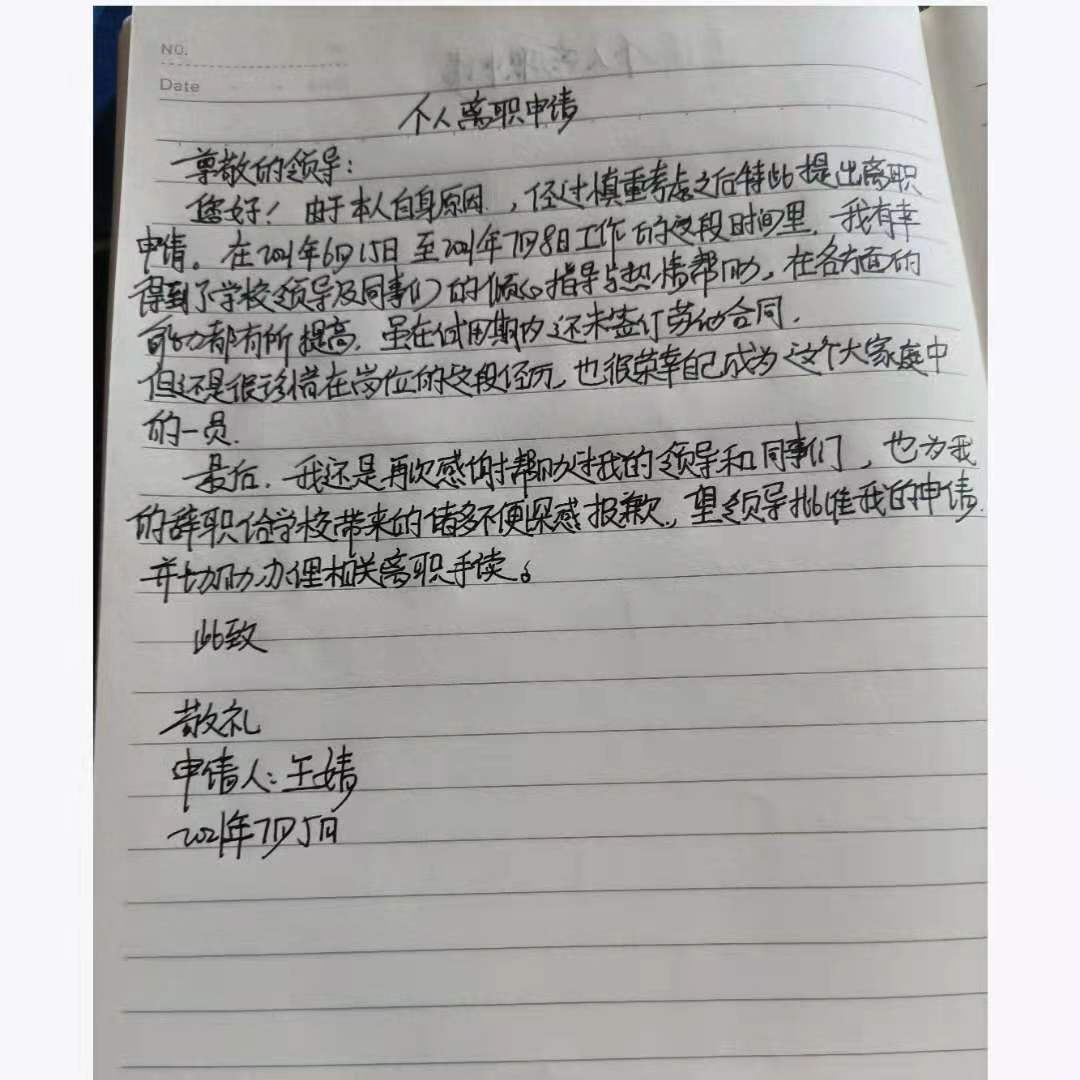 No.
Date
个人离职申请
尊敬的领导：
您好！由于本人自身原因，经过慎重考虑之后特此提出离职
申请。在2021年6月15日至2021年7月8日工作的这段时间里，我有幸
得到了学校领导及同事们的倾心指导与热情帮助，在各方面的
能力都有所提高，虽在试用期内还未签订劳动合同，
但还是很珍惜在岗位的这段经历，也很荣幸自己成为这个大家庭中
的一员.
最后，我还是再次感谢帮助过我的领导和同事们，也为我
的辞职给学校带来的诸多不便深感报歉，望领导批准我的申请，
并协助办理相关离职手续。
此致
敬礼
申请人：王婧
2021年7月5日